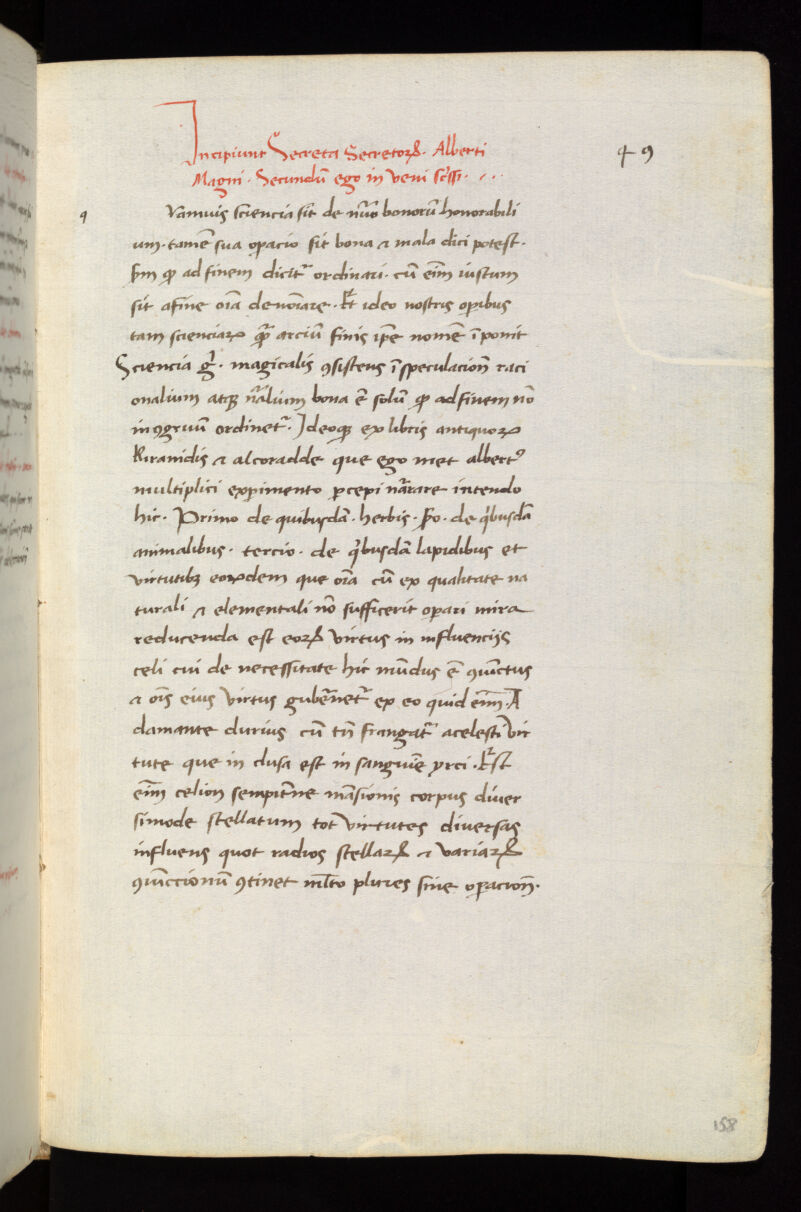 Incipiunt Secreta Secretoꝝ. Alberti
Magni. Secundū ego in veni scr̄ssi. . . .
49
q
Vamuis sciencia sit de nūo bonorū honorabili
um. tamē sua oꝑacio sit bona ⁊ mala dici potest.
ꝓ ad finem dicit᷑ ordinari. cū eīm iustum
sit afine oīa denoīare. Et ideo nostris oꝑibus
tam scienciaꝝ ꝙ̄ arciū finis ip̄e nomē īponit
Sciencia gͥ. magicalis ꝯsistens ī speculacioñ raci
onalium atqꝫ nāliuꝫ bona ē solū ꝙ ad finem nō
inꝯgruū ordinet᷑. Ideoqꝫ ex libris antiquoꝝ
Kiranidis ⁊ alcoradde que ego met albertꝰ
multiplici exꝑimento ꝑcepi nārare intendo
hic. Primo de quibusdā. herbis. de qͥbusdā
animalibus. tercio. de qͥbusdā lapidibus et
virtutibꝫ eoꝝdem que oīa cū ex qualitate na
turali ⁊ elementali nō sufficerit oꝑari mira
reducenda est eoꝝ virtus in influencijs
celi cui de necessitate hic mūdus ē ꝯiūctus
⁊ oīs eius virtus gub̄net᷑ ex eo quid eīm. A
damante durius cū tn̄ frangat᷑ acelesti vir
tute que in clusa est in sanguīe yrci. Est
eīm celion sempit̄ne māsionis corpus diuer
simode stellatum tot virtutes diuersas
influens quot radios stellaꝝ ⁊ variaꝝ
ꝯiūccionū ꝯtinet ml̄to plures siue oꝑacioñ.
158